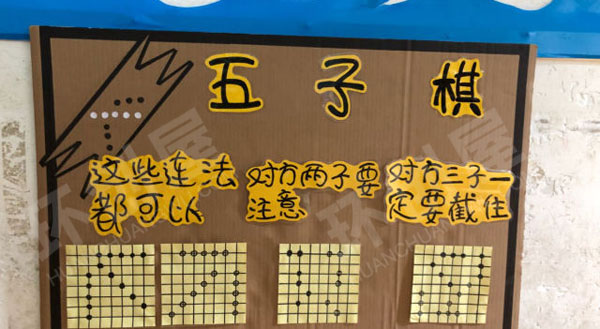 五子棋
这些连法
都可以
对方两子要
注意
对方三子一
定要截住